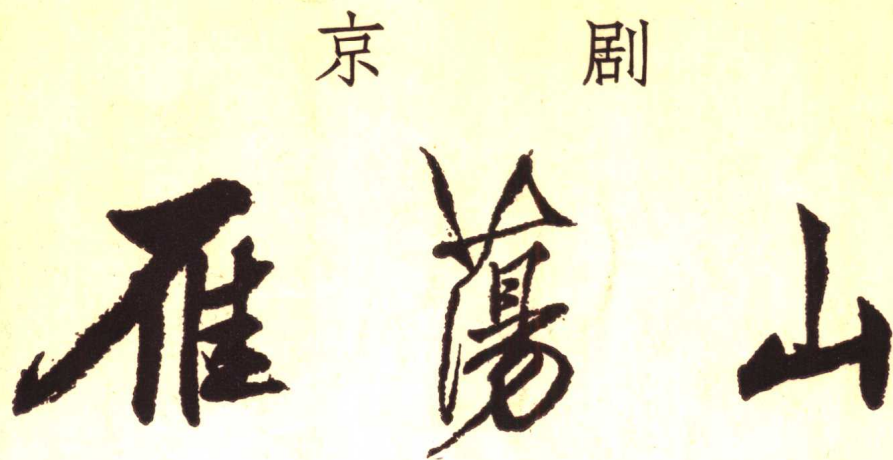 京剧
雁蕩山